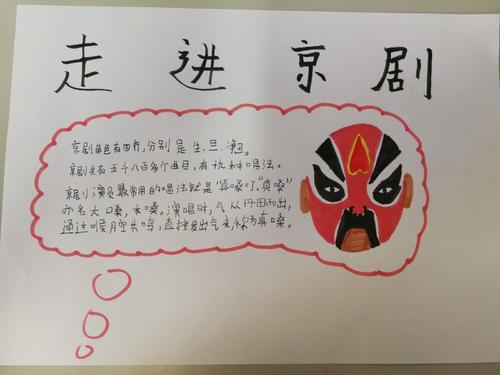 走进京剧
京剧角色有四行,分别是生.旦.净.丑。
京剧共有五千八百多个曲目,有种唱法。
京剧演员最常用的唱法就是"真嗓","真嗓"
亦名大嗓,本嗓。演唱时,气从丹田而出,
通过喉腔共鸣,直接发出气来称为真嗓。